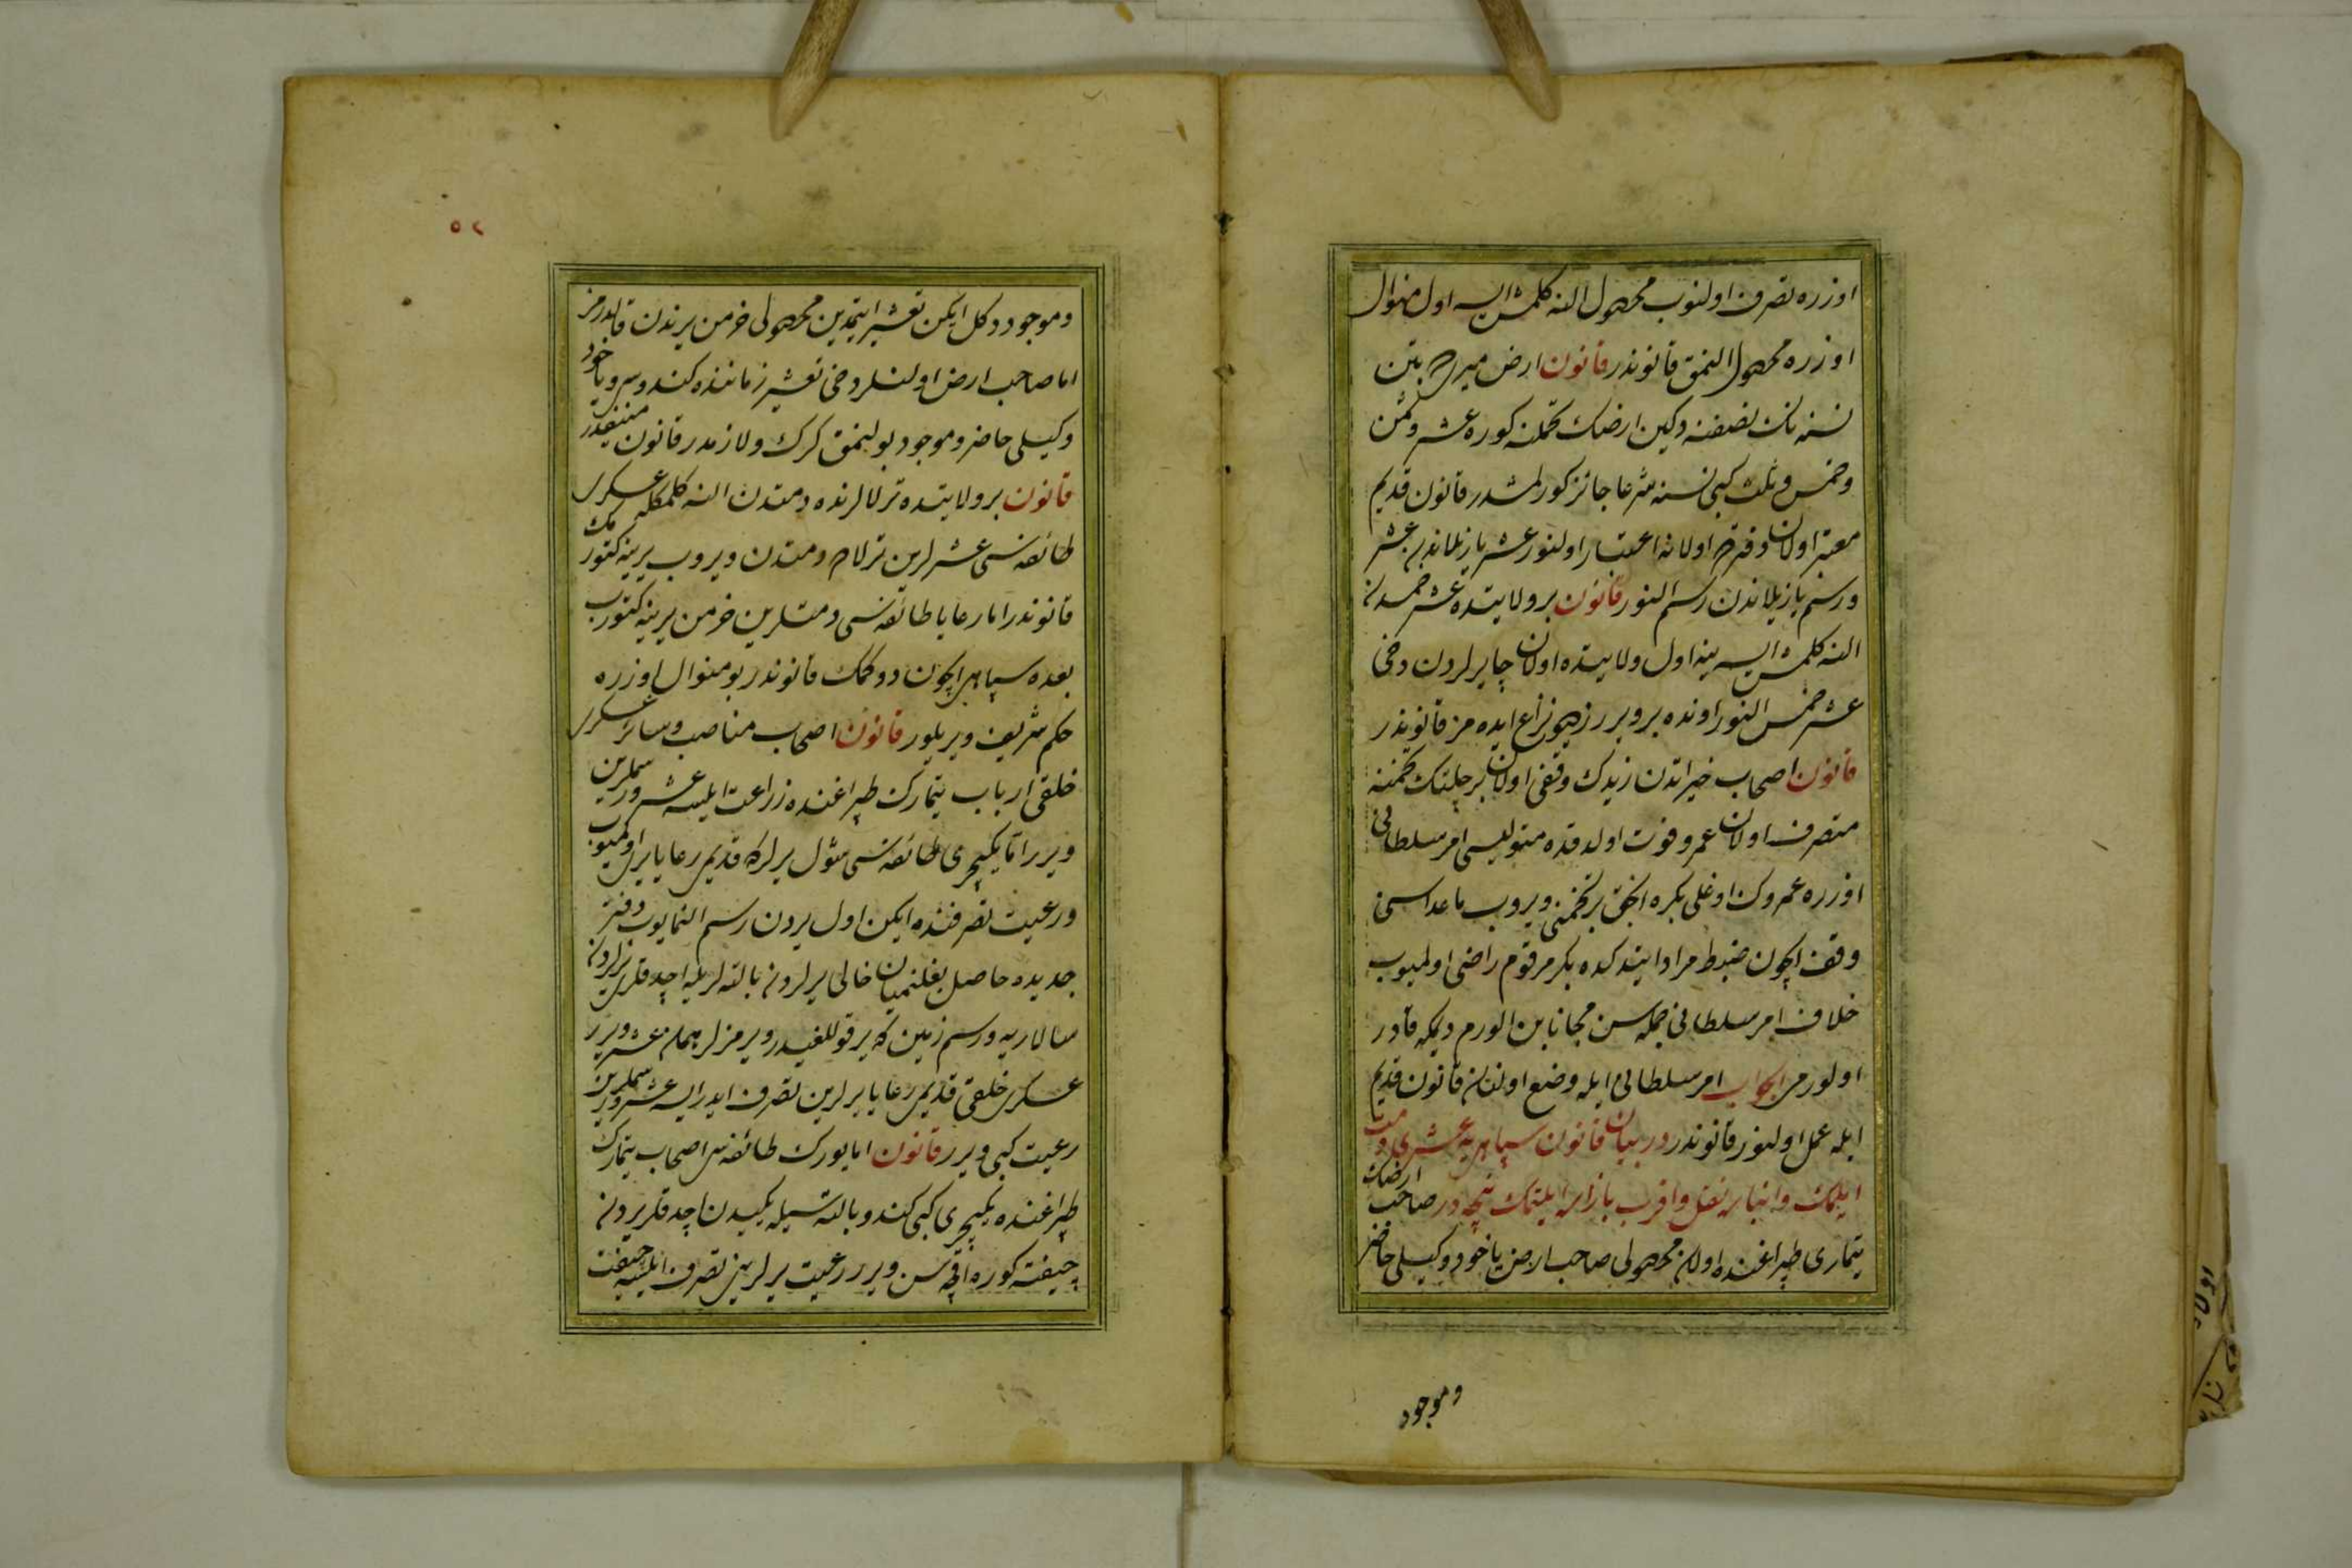 اوزره تصرف اولنوب محصول النه كلمش ايسه اول منوال
اوزره محصول النمق قانوندر قانون ارض ميريه بتن
نسنه نك نصفنه دكين ارضك تحملنه كوره عشر و ثمن
و خمس و ثلث كبى نسنه شرعا جائز كورلمشدر قانون قديم
معتبر اولان دفترده اولانه اعتبار اولنور عشر يازيلاندن عشر
و رسم يازيلاندن رسم النور قانون بر ولايتده عشر خمسدن
النه كلمش ايسه ينه اول ولايتده اولان چايرلردن دخى
عشر خمس النور اونده بر ويررز ديو نزاع ايده مز قانوندر
قانون اصحاب خيراتدن زيدك وقفى اولان بر چفتلك تخمنه
متصرف اولان عمرو فوت اولدقده متوليسى امر سلطانى
اوزره عمروك اوغلى بكره انجق بر تخمنى ويروب ماعداسنى
وقف ايچون ضبط مراد ايتدكده بكر مرقوم راضى اولميوب
خلاف امر سلطانى جمله سن مجانا بن الورم ديمكه قادر
اولورمى الجواب امر سلطانى ايله وضع اولنان قانون قديم
ايله عمل اولنور قانوندر در بيان قانون سپاهيه عشرى دمت
ايلمك و انباره نقل و اقرب بازاره ايلتمك نيجه در صاحب ارضك
تيمارى طپراغنده اولان محصولى صاحب ارض ياخود وكيلى حاضر
و موجود
٥٢
و موجود دكل ايكن تعشير ايتمدين محصولى خرمن يرندن قالدرمز
اما صاحب ارض اولنلر دخى تعشير زماننده كندوسى و ياخود
وكيلى حاضر و موجود بولنمق كرك و لازمدر قانون منيفدر
قانون بر ولايتده ترلالرنده دمتدن النه كلمكله عسكرى
طائفه سى عشرلرين ترلاده دمتدن ويروب يرينه كتورمك
قانوندر اما رعايا طائفه سى دمتلرين خرمن يرينه كتورب
بعده سپاهى ايچون دوكمك قانوندر بو منوال اوزره
حكم شريف ويريلور قانون اصحاب مناصب و سائر عسكرى
خلقى ارباب تيمارك طپراغنده زراعت ايلسه عشر و رسملرين
ويرر اما يكيچرى طائفه سى شول يرلركه قديمى رعايا يرى اولميوب
و رعيت تصرفنده ايكن اول يردن رسم النمايوب دفتر
جديده حاصل بغلنميان خالى يرلردن بالته لريله اچدقلرى يرلردن
سالاريه و رسم زمين كه ير قوللغيدر ويرمزلر همان عشر ويرر
عسكرى خلقى قديمى رعايا يرلرين تصرف ايدر ايسه عشر و رسملرين
رعيت كبى ويرر قانون اما يورك طائفه سى اصحاب تيمارك
طپراغنده يكيچرى كبى كندو بالته سيله يكيدن اچدقلرى يردن
چيفته كوره اقچه سن ويرر رعيت يرلرينى تصرف ايلسه چيفت